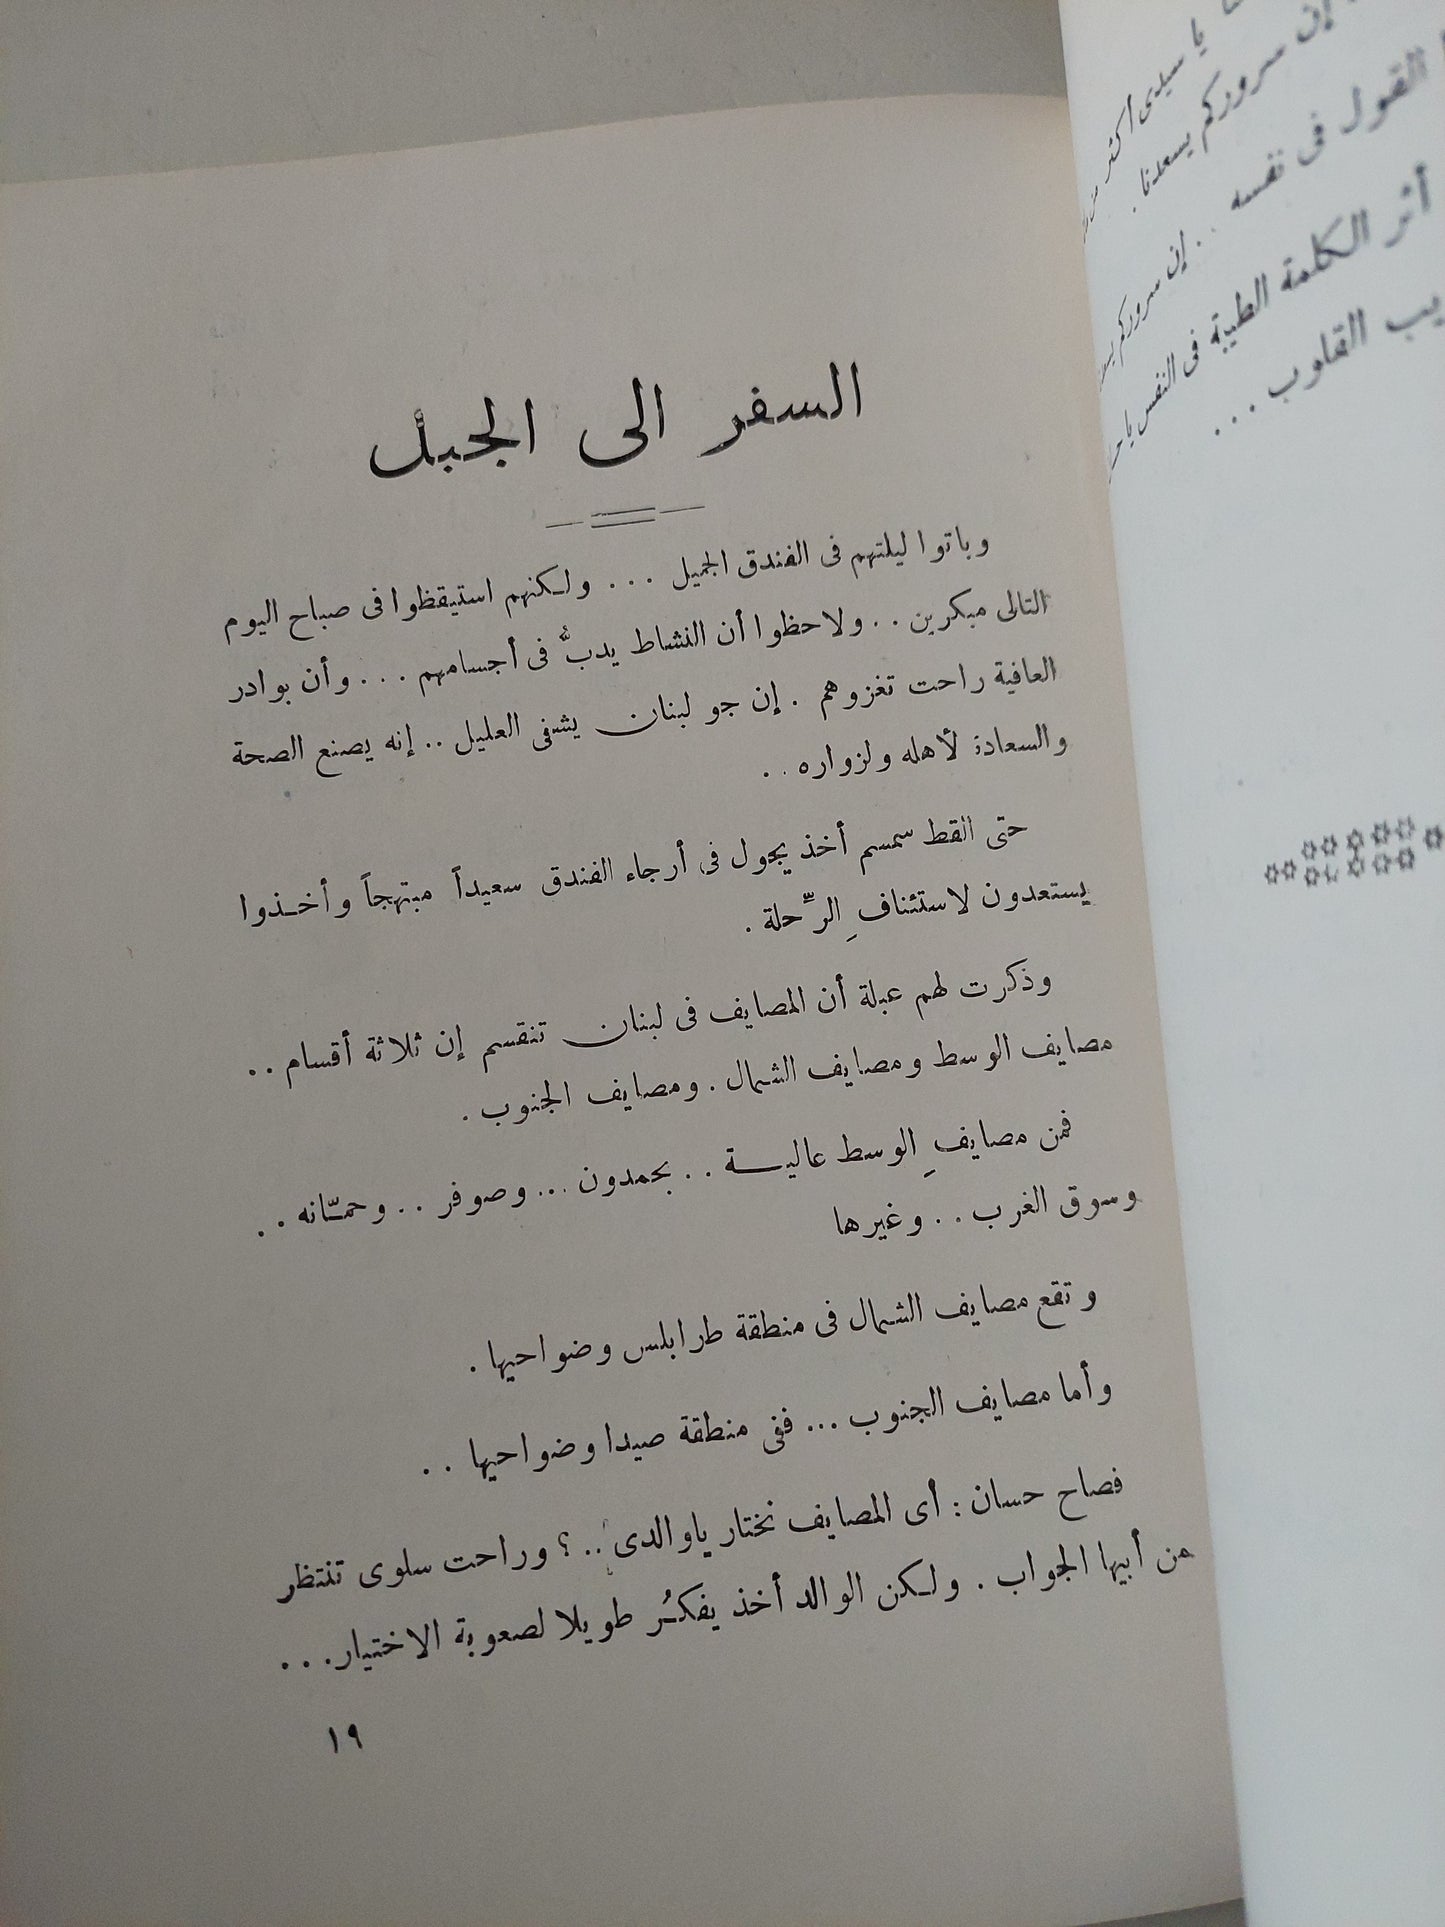 يا سيدى أكثر من
إن سروركم يسعدنا .
القول فى نفسه . . إن سروركم
أثر الكلمة الطيبة فى النفس يا
القلوب . . .
السفر الى الجبل
وباتوا ليلتهم فى الفندق الجميل . . . ولكنهم استيقظوا فى صباح اليوم
التالى مبكرين . . ولاحظوا أن النشاط يدبُّ فى أجسامهم . . . وأن بوادر
العافية راحت تغزوهم . إن جو لبنان يشفى العليل .. إنه يصنع الصحة
والسعادة لأهله ولزواره . .
حتى القط سمسم أخذ يجول فى أرجاء الفندق سعيداً مبتهجاً وأخذوا
يستعدون لاستئنافِ الرِّحلة .
وذكرت لهم عبلة أن المصايف فى لبنان تنقسم إن ثلاثة أقسام . .
مصايف الوسط ومصايف الشمال . ومصايف الجنوب .
فمن مصايفِ الوسط عالية . . بحمدون ... وصوفر . . وحمّانه . .
وسوق الغرب . . وغيرها
وتقع مصايف الشمال فى منطقة طرابلس وضواحيها .
وأما مصايف الجنوب ... ففى منطقة صيدا وضواحيها . .
فصاح حسان : أى المصايف نختار ياوالدى .. ؟ وراحت سلوى تنتظر
من أبيها الجواب . ولكن الوالد أخذ يفكرُ طويلا لصعوبة الاختيار. . .
١٩